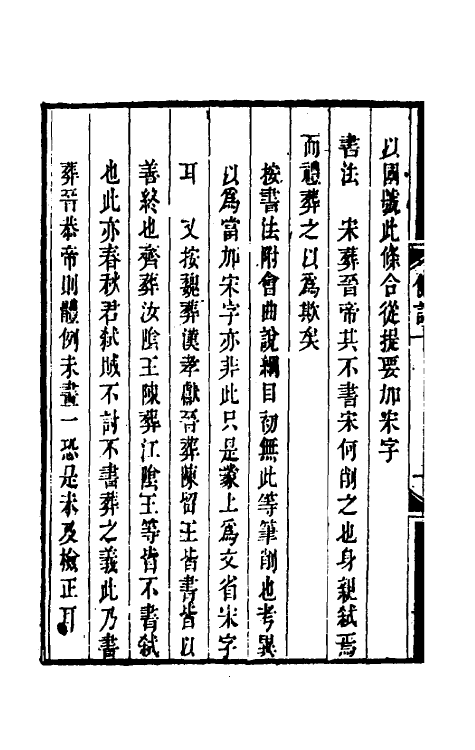 以國號此條合從提要加宋字
書法　宋葬晉帝其不書宋何削之也身親弒焉
而禮葬之以爲欺矣
按書法附會曲說綱目初無此等筆削也考異
以爲當加宋字亦非此只是蒙上爲文省宋字
耳　又按魏葬漢孝獻晉葬陳留王皆書皆以
善終也齊葬汝陰王陳葬江陰王等皆不書弒
也此亦春秋君弒賊不討不書葬之義此乃書
葬晉恭帝則體例未畫一恐是未及檢正耳